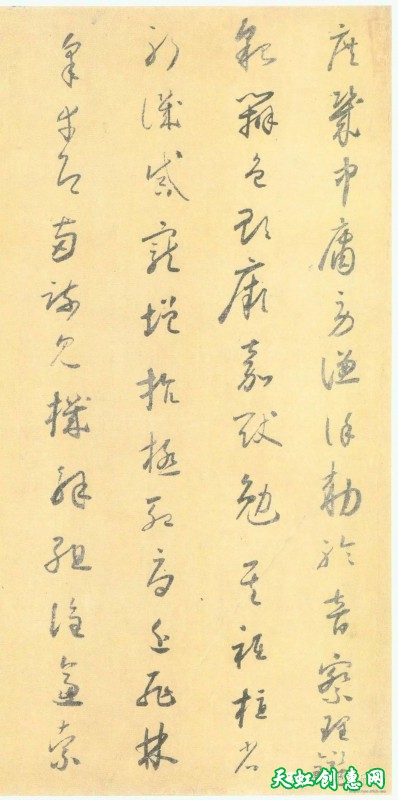 庶幾中庸勞謙謹勑聆音察理鑑
貌辯色貽厥嘉猷勉其祗植省
躬譏誡寵增抗極殆辱近恥林
皋幸即兩疏見機解組誰逼索
天虹创惠网